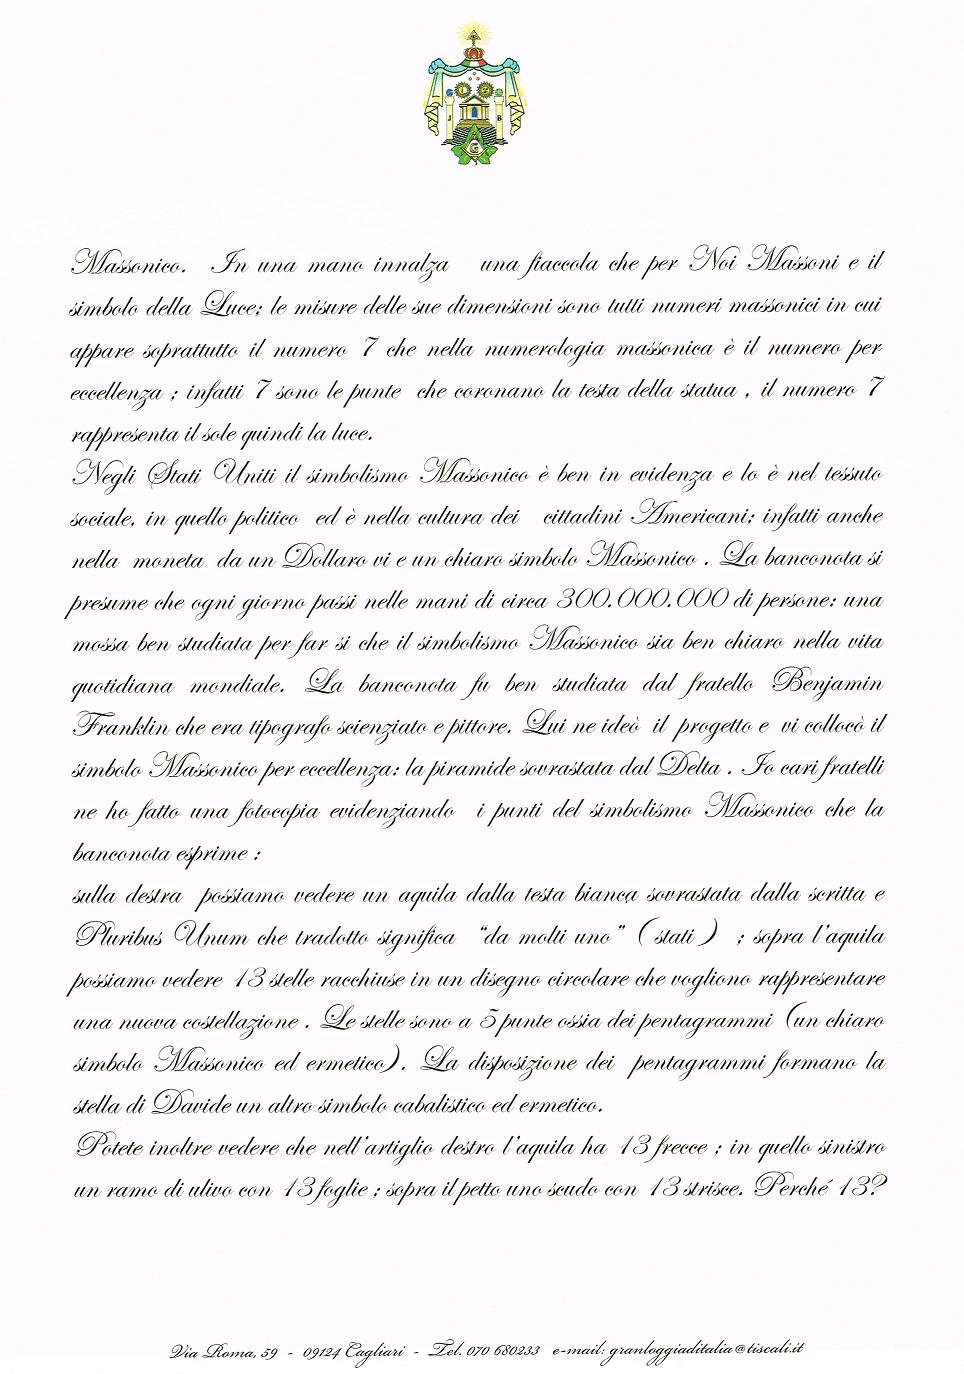 J B
G
Massonico. In una mano innalza una fiaccola che per Noi Massoni e il
simbolo della Luce; le misure delle sue dimensioni sono tutti numeri massonici in cui
appare soprattutto il numero 7 che nella numerologia massonica è il numero per
eccellenza ; infatti 7 sono le punte che coronano la testa della statua , il numero 7
rappresenta il sole quindi la luce.
Negli Stati Uniti il simbolismo Massonico è ben in evidenza e lo è nel tessuto
sociale, in quello politico ed è nella cultura dei cittadini Americani; infatti anche
nella moneta da un Dollaro vi e un chiaro simbolo Massonico . La banconota si
presume che ogni giorno passi nelle mani di circa 300.000.000 di persone: una
mossa ben studiata per far si che il simbolismo Massonico sia ben chiaro nella vita
quotidiana mondiale. La banconota fu ben studiata dal fratello Benjamin
Franklin che era tipografo scienziato e pittore. Lui ne ideò il progetto e vi collocò il
simbolo Massonico per eccellenza: la piramide sovrastata dal Delta . Io cari fratelli
ne ho fatto una fotocopia evidenziando i punti del simbolismo Massonico che la
banconota esprime :
sulla destra possiamo vedere un aquila dalla testa bianca sovrastata dalla scritta e
Pluribus Unum che tradotto significa “da molti uno” ( stati ) ; sopra l'aquila
possiamo vedere 13 stelle racchiuse in un disegno circolare che vogliono rappresentare
una nuova costellazione . Le stelle sono a 5 punte ossia dei pentagrammi (un chiaro
simbolo Massonico ed ermetico). La disposizione dei pentagrammi formano la
stella di Davide un altro simbolo cabalistico ed ermetico.
Potete inoltre vedere che nell'artiglio destro l'aquila ha 13 frecce ; in quello sinistro
un ramo di ulivo con 13 foglie ; sopra il petto uno scudo con 13 strisce. Perché 13?
Via Roma, 59 - 09124 Cagliari - Tel. 070 680233 e-mail: granloggiaditalia@tiscali.it